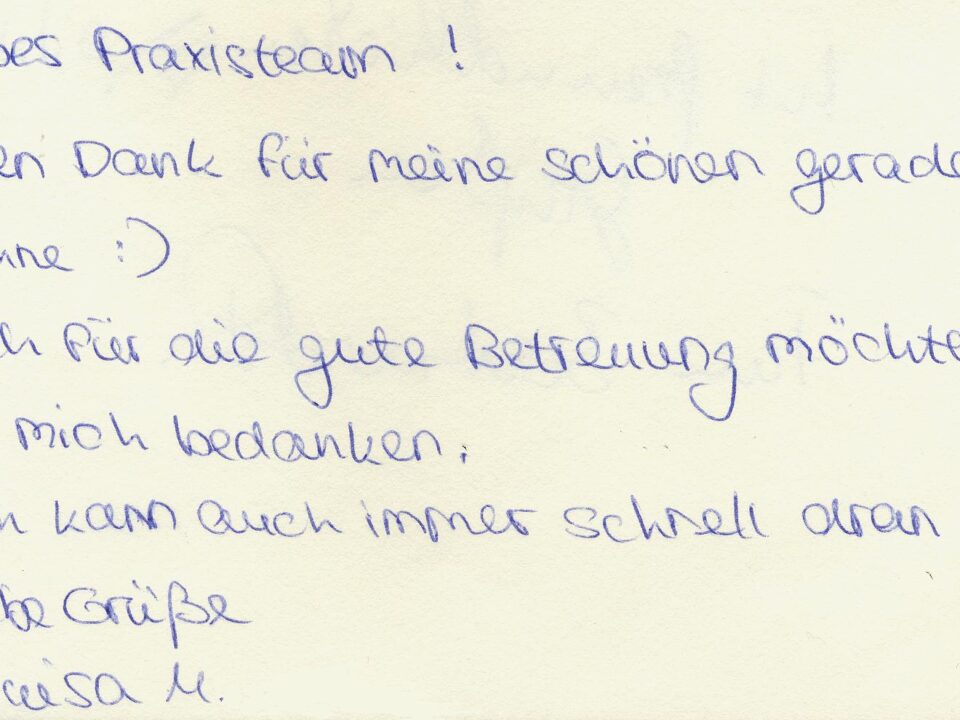 bes Praxisteam !
en Dank für meine schönen gerade
hne :)
ch für die gute Betreuung möchte
mich bedanken.
h kam auch immer schnell dran
be Grüße
uisa M.